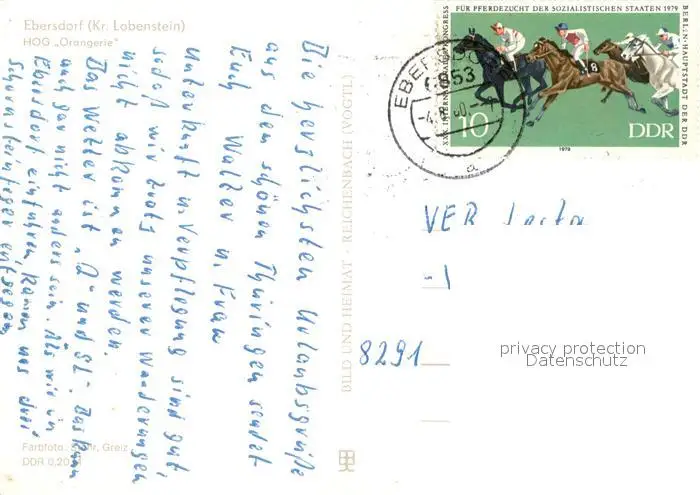 Ebersdorf (Kr. Lobenstein)
HOG „Orangerie“
Die herzlichsten Urlaubsgrüße
aus dem schönen Thüringen sendet
Euch Walter u. Frau
Unterkunft u. Verpflegung sind gut,
sodaß wir trotz unserer Wanderungen
nicht abkommen werden.
Das Wetter ist „Q“ und gl. Das kann
auch gar nicht anders sein. Als wir in
Ebersdorf einfuhren, kamen uns drei
Schornsteinfeger entgegen
Farbfoto: Greiz
DDR 0,20
BILD UND HEIMAT REICHENBACH (VOGTL)
XXX. INTERNATIONALER KONGRESS
FÜR PFERDEZUCHT DER SOZIALISTISCHEN STAATEN 1979
BERLIN·HAUPTSTADT DER DDR
8
10
DDR
1979
6853
a
VEB
8291
privacy protection
Datenschutz